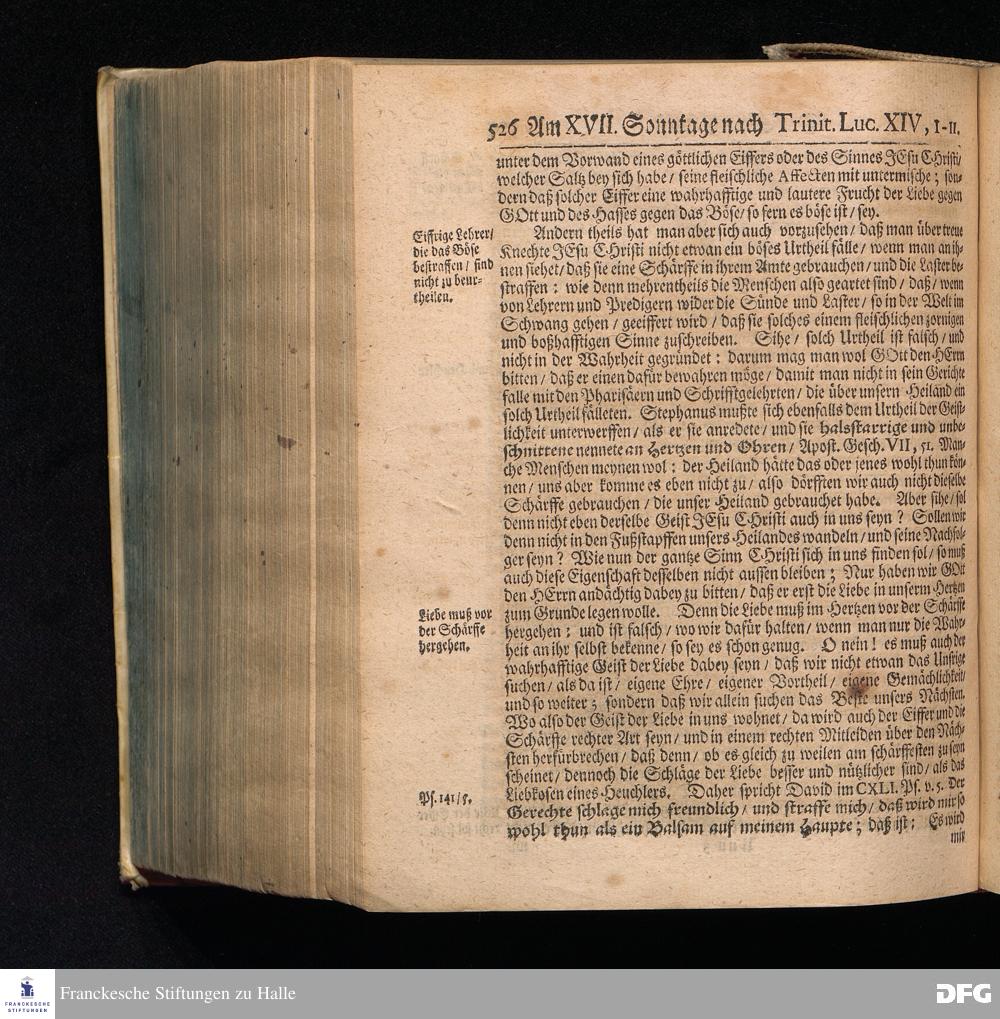 526 Am XVII. Sonntage nach Trinit. Luc. XIV, 1-11.
unter dem Vorwand eines göttlichen Eiffers oder des Sinnes JEsu Christi/
welcher Saltz bey sich habe/ seine fleischliche Affecten mit untermische; son-
dern daß solcher Eiffer eine wahrhafftige und lautere Frucht der Liebe gegen
GOtt und des Hasses gegen das Böse/ so fern es böse ist/ sey.
Eiffrige Lehrer/
die das Böse
bestraffen/ sind
nicht zu beur-
theilen.
Andern theils hat man aber sich auch vorzusehen/ daß man über treue
Knechte JEsu Christi nicht etwan ein böses Urtheil fälle/ wenn man an ih-
nen siehet/ daß sie eine Schärffe in ihrem Amte gebrauchen/ und die Laster be-
straffen: wie denn mehrentheils die Menschen also geartet sind/ daß/ wenn
von Lehrern und Predigern wider die Sünde und Laster/ so in der Welt im
Schwang gehen/ geeiffert wird/ daß sie solches einem fleischlichen zornigen
und boßhafftigen Sinne zuschreiben. Sihe/ solch Urtheil ist falsch/ und
nicht in der Wahrheit gegründet: darum mag man wol GOtt den HErrn
bitten/ daß er einen dafür bewahren möge/ damit man nicht in sein Gerichte
falle mit den Pharisäern und Schrifftgelehrten/ die über unsern Heiland ein
solch Urtheil fälleten. Stephanus mußte sich ebenfalls dem Urtheil der Geist-
lichkeit unterwerffen/ als er sie anredete/ und sie halsstarrige und unbe-
schnittene nennete an Hertzen und Ohren/ Apost. Gesch. VII, 51. Man-
che Menschen meynen wol: der Heiland hätte das oder jenes wohl thun kön-
nen/ uns aber komme es eben nicht zu/ also dörfften wir auch nicht dieselbe
Schärffe gebrauchen/ die unser Heiland gebrauchet habe. Aber sihe/ sol
denn nicht eben derselbe Geist JEsu Christi auch in uns seyn? Sollen wir
denn nicht in den Fußstapffen unsers Heilandes wandeln/ und seine Nachfol-
ger seyn? Wie nun der gantze Sinn Christi sich in uns finden sol/ so muß
auch diese Eigenschaft desselben nicht aussen bleiben; Nur haben wir GOtt
den HErrn andächtig dabey zu bitten/ daß er erst die Liebe in unserm Hertzen
Liebe muß vor
der Schärffe
hergehen.
zum Grunde legen wolle. Denn die Liebe muß im Hertzen vor der Schärffe
hergehen: und ist falsch/ wo wir dafür halten/ wenn man nur die Wahr-
heit an ihr selbst bekenne/ so sey es schon genug. O nein! es muß auch der
wahrhafftige Geist der Liebe dabey seyn/ daß wir nicht etwan das Unsrige
suchen/ als da ist/ eigene Ehre/ eigener Vortheil/ eigene Gemächlichkeit/
und so weiter; sondern daß wir allein suchen das Beste unsers Nächsten.
Wo also der Geist der Liebe in uns wohnet/ da wird auch der Eiffer und die
Schärffe rechter Art seyn/ und in einem rechten Mitleiden über den Näch-
sten herfürbrechen/ daß denn/ ob es gleich zu weilen am schärffesten zu seyn
scheinet/ dennoch die Schläge der Liebe besser und nützlicher sind/ als das
Ps. 141/5.
Liebkosen eines Heuchlers. Daher spricht David im CXLI. Ps. v. 5. Der
Gerechte schlage mich freundlich/ und straffe mich/ daß wird mir so
wohl thun als ein Balsam auf meinem Haupte; daß ist: Es wird
mir
FRANCKESCHE
STIFTUNGEN
Franckesche Stiftungen zu Halle
DFG